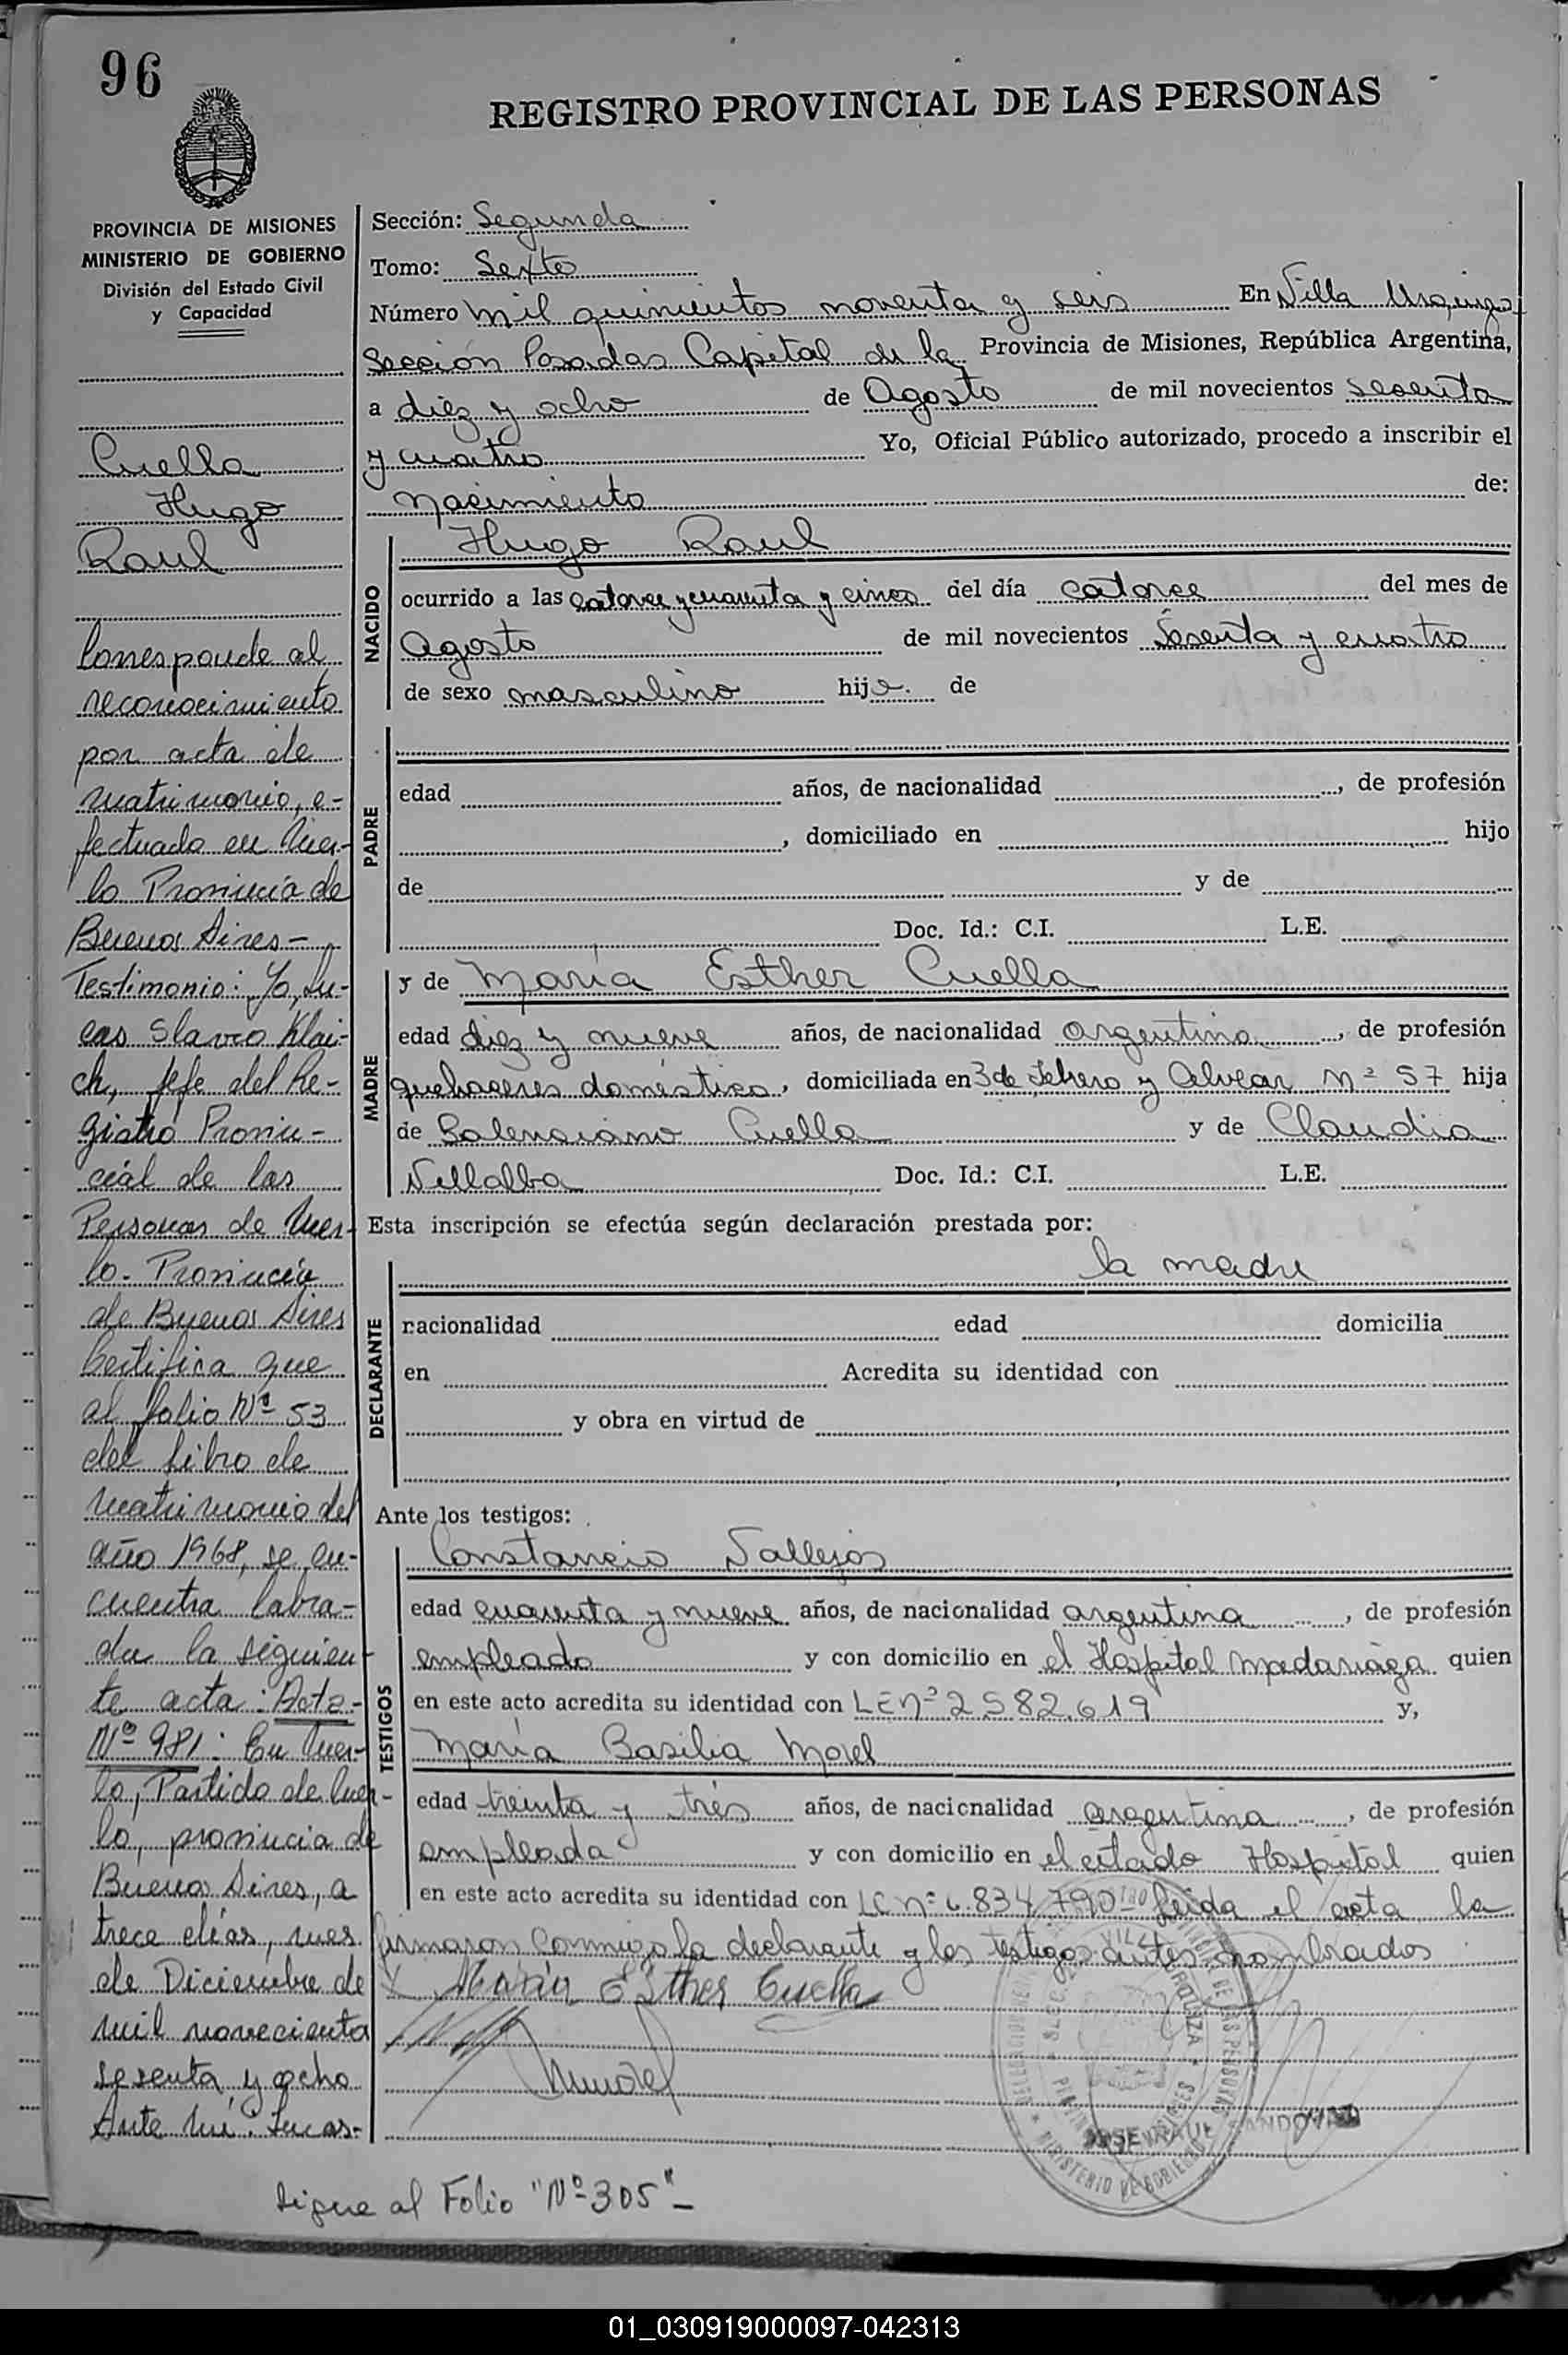 96
REGISTRO PROVINCIAL DE LAS PERSONAS
PROVINCIA DE MISIONES
MINISTERIO DE GOBIERNO
División del Estado Civil
y Capacidad
Cuella
Hugo
Raul
Corresponde al
reconocimiento
por acta de
matrimonio, e-
fectuado en Mer-
lo Provincia de
Buenos Aires-
Testimonio: Yo, Lu-
cas Slavco Klai-
ch, Jefe del Re-
gistro Provin-
cial de las
Personas de Mer-
lo- Provincia
de Buenos Aires
Certifica que
al folio Nº 53
del Libro de
matrimonio del
año 1968, se en-
cuentra labra-
da la siguien-
te acta: Acta-
Nº 981: En Mer-
lo, Partido de Mer-
lo, provincia de
Buenos Aires, a
trece días, mes
de Diciembre de
mil novecienta
sesenta y ocho
Ante mi: Lucas-
Sección: Segunda
Tomo: Sexto
Número mil quinientos noventa y seis En Villa Urquiza
Sección Posadas Capital de la Provincia de Misiones, República Argentina,
a diez y ocho de Agosto de mil novecientos sesenta
y cuatro Yo, Oficial Público autorizado, procedo a inscribir el
nacimiento de:
NACIDO
Hugo Raul
ocurrido a las catorce y cuarenta y cinco del día catorce del mes de
Agosto de mil novecientos sesenta y cuatro
de sexo masculino hijo. de
PADRE
edad años, de nacionalidad , de profesión
, domiciliado en hijo
de y de
Doc. Id.: C.I. L.E.
MADRE
y de María Esther Cuella
edad diez y nueve años, de nacionalidad argentina, de profesión
quehaceres domésticos, domiciliada en 3 de Febrero y Alvear Nº 57 hija
de Cuella y de Claudia
Villalba Doc. Id.: C.I. L.E.
Esta inscripción se efectúa según declaración prestada por:
DECLARANTE
la madre
nacionalidad edad domicilia
en Acredita su identidad con
y obra en virtud de
Ante los testigos:
TESTIGOS
Constancio Vallejos
edad cuarenta y nueve años, de nacionalidad argentina, de profesión
empleado y con domicilio en el Hospital Madariaga quien
en este acto acredita su identidad con LE nº 2582.619 y,
María Basilia Morel
edad treinta y trés años, de nacionalidad argentina, de profesión
empleada y con domicilio en el citado Hospital quien
en este acto acredita su identidad con LC nº 6.834.790- Leida el acta la
firmaron conmigo la declarante y los testigos antes nombrados
María Esther Cuella
MINISTERIO DE GOBIERNO
JOSE RAUL SANDOVAL
Sigue al Folio "Nº 305"-
01_030919000097-042313